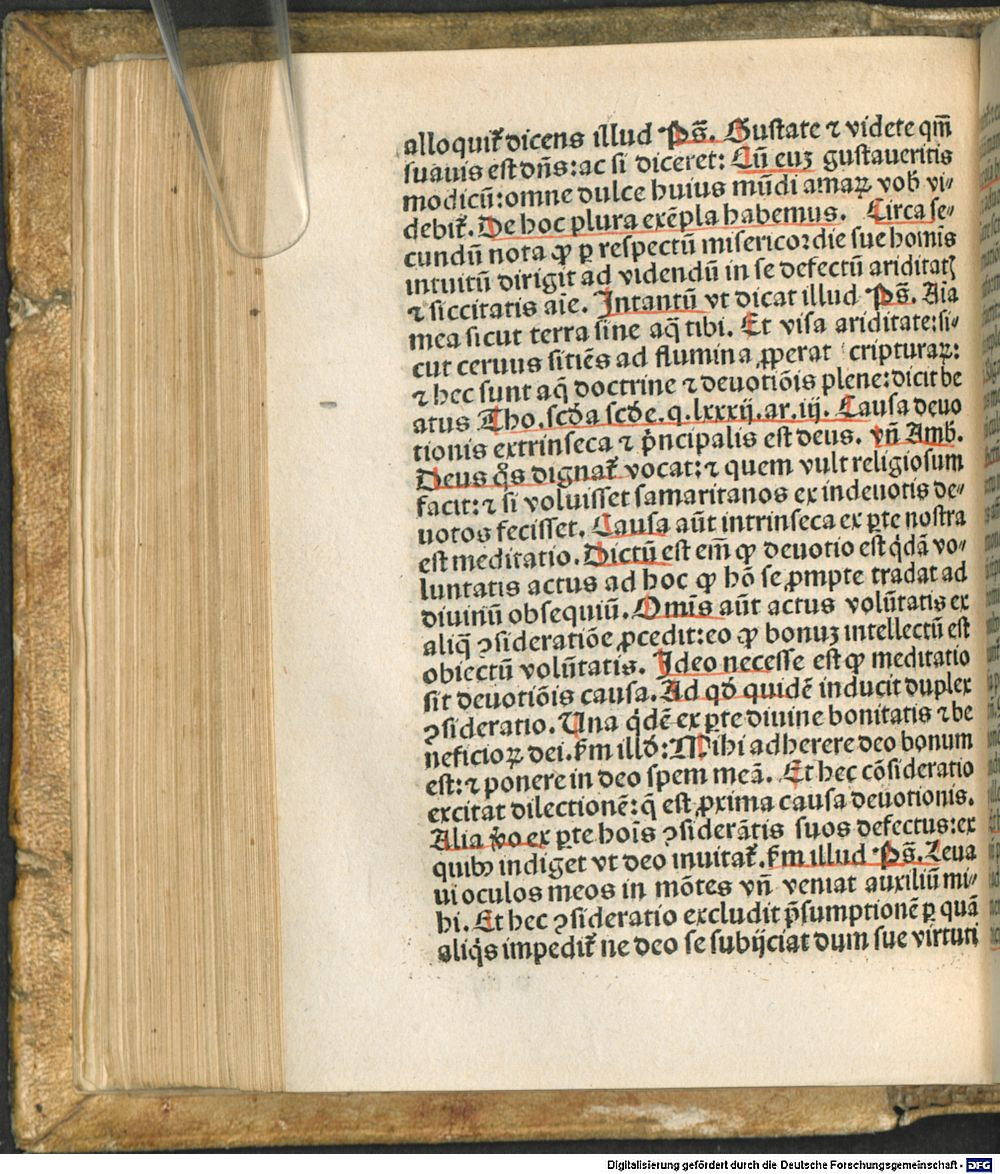 alloquiť dicens illud Ps̄. Gustate ⁊ videte qm̄
suauis est dn̄s: ac si diceret: Cū euꝫ gustaueritis
modicū: omne dulce huius mūdi amaꝝ vob̄ vi⸗
debiť. De hoc plura exēpla habemus. Circa se⸗
cundū nota ꝙ ꝑ respectū misericordie sue homīs
intuitū dirigit ad videndū in se defectū ariditatꝭ
⁊ siccitatis aīe. Intantū vt dicat illud Ps̄. Aīa
mea sicut terra sine aq̄ tibi. Et visa ariditate: si⸗
cut ceruus sitiēs ad flumina ꝓperat cripturaꝝ:
⁊ hec sunt aq̄ doctrine ⁊ deuotiōis plene: dicit be
atus Tho. scďa scďe. q. lxxxij. ar. iij. Causa deuo
tionis extrinseca ⁊ p̄ncipalis est deus. vn̄ Amb.
Deus q̊s dignať vocat: ⁊ quem vult religiosum
facit: ⁊ si voluisset samaritanos ex indeuotis de⸗
uotos fecisset. Causa aūt intrinseca ex ꝑte nostra
est meditatio. Dictū est em̄ ꝙ deuotio est q̇dā vo⸗
luntatis actus ad hoc ꝙ hō se ꝓmpte tradat ad
diuinū obsequiū. Omīs aūt actus volūtatis ex
aliq̄ ꝯsideratiōe ꝓcedit: eo ꝙ bonuꝫ intellectū est
obiectū volūtatis. Ideo necesse est ꝙ meditatio
sit deuotiōis causa. Ad qď quidē inducit duplex
ꝯsideratio. Una q̇dē ex ꝑte diuine bonitatis ⁊ be
neficioꝝ dei. ẜm illď: Mihi adherere deo bonum
est: ⁊ ponere in deo spem meā. Et hec cōsideratio
excitat dilectionē: q̄ est ꝓxima causa deuotionis.
Alia ꝟo ex ꝑte hoīs ꝯsiderātis suos defectus: ex
quibꝰ indiget vt deo inuitať. ẜm illud Ps̄. Leua
ui oculos meos in mōtes vn̄ veniat auxiliū mi⸗
hi. Et hec ꝯsideratio excludit p̄sumptionē ꝑ quā
aliq̇s impediť ne deo se subijciat dum sue virtuti
Digitalisierung gefördert durch die Deutsche Forschungsgemeinschaft - DFG